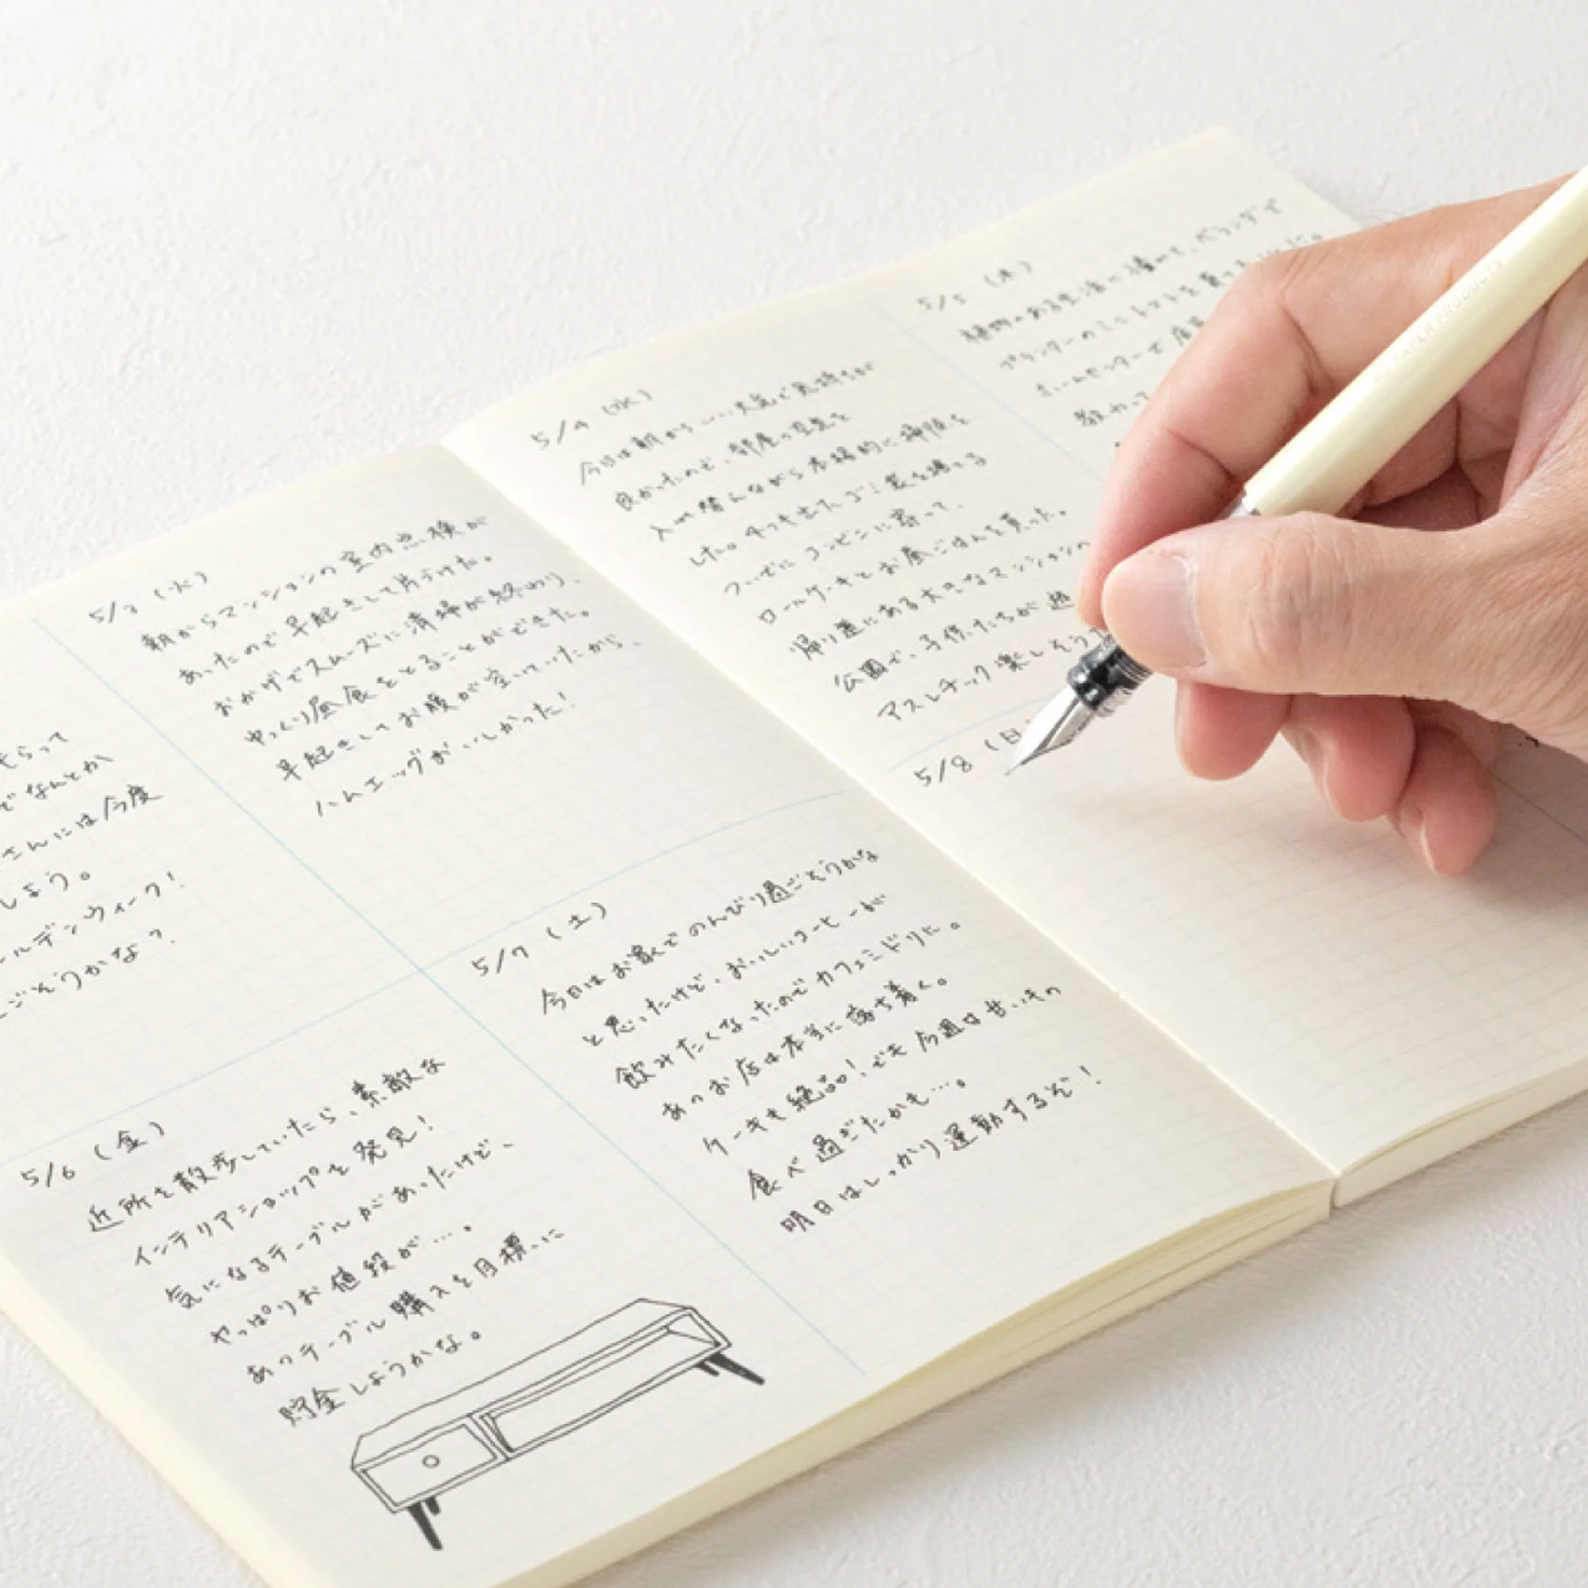 もらって
でなんとか
さんには今度
しよう。
ールデンウィーク!
ごそうかな?
5/3 (火)
朝からマンションの室内点検が
あったので早起きして片づけた。
おかげでスムーズに清掃が終わり、
ゆっくり昼食をとることができた。
早起きしてお腹が空いていたから、
ハムエッグがおいしかった!
5/6 (金)
近所を散歩していたら、素敵な
インテリアショップを発見!
気になるテーブルがあったけど、
やっぱりお値段が…。
あのテーブル購入を目標に
貯金しようかな。
5/7 (土)
今日はお家でのんびり過ごそうかな
と思ったけど、おいしいコーヒーが
飲みたくなったのでカフェミドリに。
あのお店は本当に落ち着く。
ケーキも絶品!でも今週は甘いもの
食べ過ぎたかも…。
明日はしっかり運動するぞ!
5/4 (水)
今日は朝からいい天気で気持ちが
良かったので、部屋の空気を
入れ替えながら本格的に掃除を
した。4つも出たゴミ袋を捨てる
ついでにコンビニに寄って、
ロールケーキとお昼ごはんを買った。
帰り道にある大きなマンションの
公園で、子供たちが遊
アスレチック楽しそう
5/5 (木)
植物のある生活に憧れて、ベランダで
プランターのミニトマトを育て
ホームセンターで店
教わって
5/8 (日